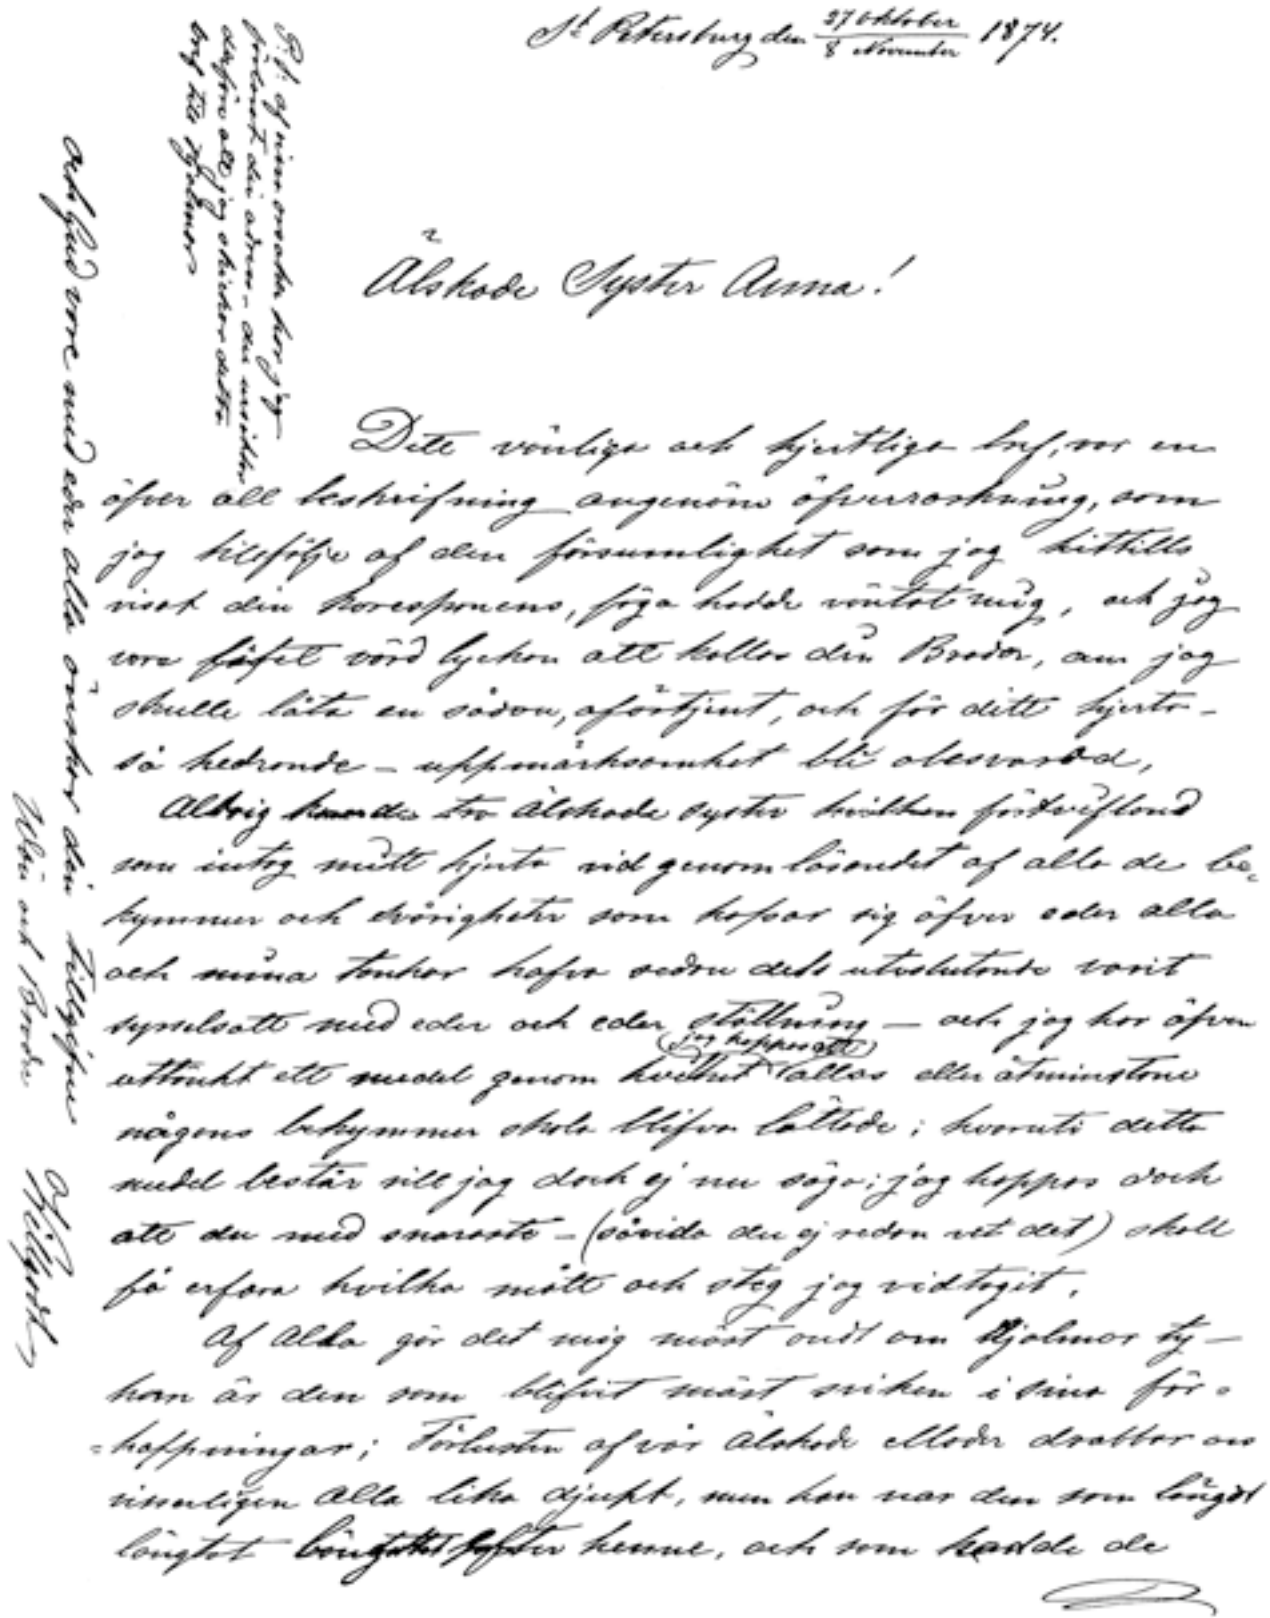 St Petersburg den 27 Oktober / 8 November 1874.
Älskade Syster Anna!
Ditt vänliga och hjertliga bref, var en
öfver all beskrifning angenäm öfverraskning, som
jag tillfölje af den försumlighet som jag hittills
visat din korresponens, föga hade väntat mig, och jag
vore föfel värd lyckan att kallas din Broder, om jag
skulle låta en sådan, oförtjent, och för ditt hjerta –
så hedrande – uppmärksamhet bli obesvarad,
Aldrig tro Älskade syster hvilken förtvifland
som intog mitt hjerta vid genom läsandet af alla de be-
kymmer och svårigheter som hopar sig öfver eder alla
och mina tankar hafva sedan dels uteslutande varit
sysselsatt med eder och eder ställning – och jag har äfven
(jag hoppas att)
uttänkt ett medel genom hvilket allas eller åtminstone
någons bekymmer skola blifva lättade; hvaruti detta
medel består vill jag dock ej nu säga; jag hoppas dock
att du med snaraste – (såvida du ej redan vet det) skall
få erfara hvilka mått och steg jag vidtagit.
Af Alla gör det mig mäst ondt om Hjalmar ty –
han är den som blifvit mäst sviken i sina för=
=hoppningar; Förlusten af vår Älskade Moder drabbar oss
visserligen Alla lika djupt, men han var den som längst
längtat efter henne, och som hade de
P.S. af min orsak har jag
förlorat din adress – du ursäktar
derföre att jag skickar detta
bref till Hjalmar
och Gud vore med eder alla önskar din tillgifne
Vän och Broder